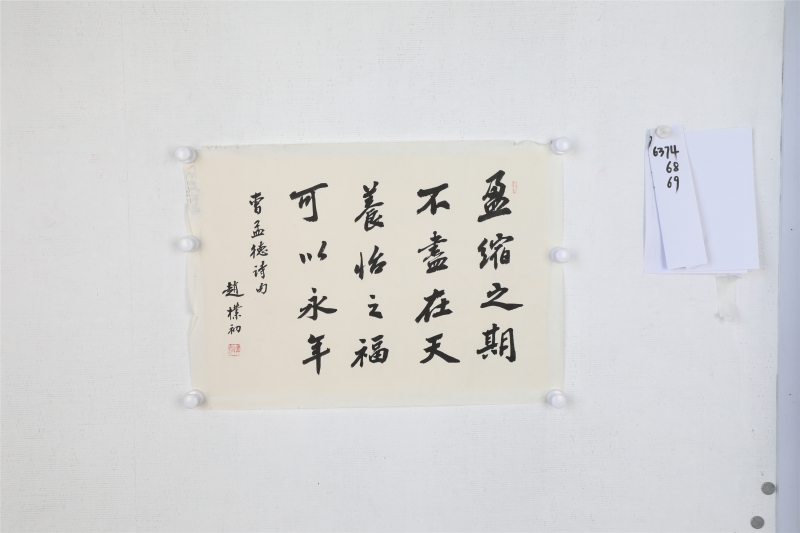 盈缩之期
不盡在天
養怡之福
可以永年
曹孟德诗句
趙樸初
6374
68
69